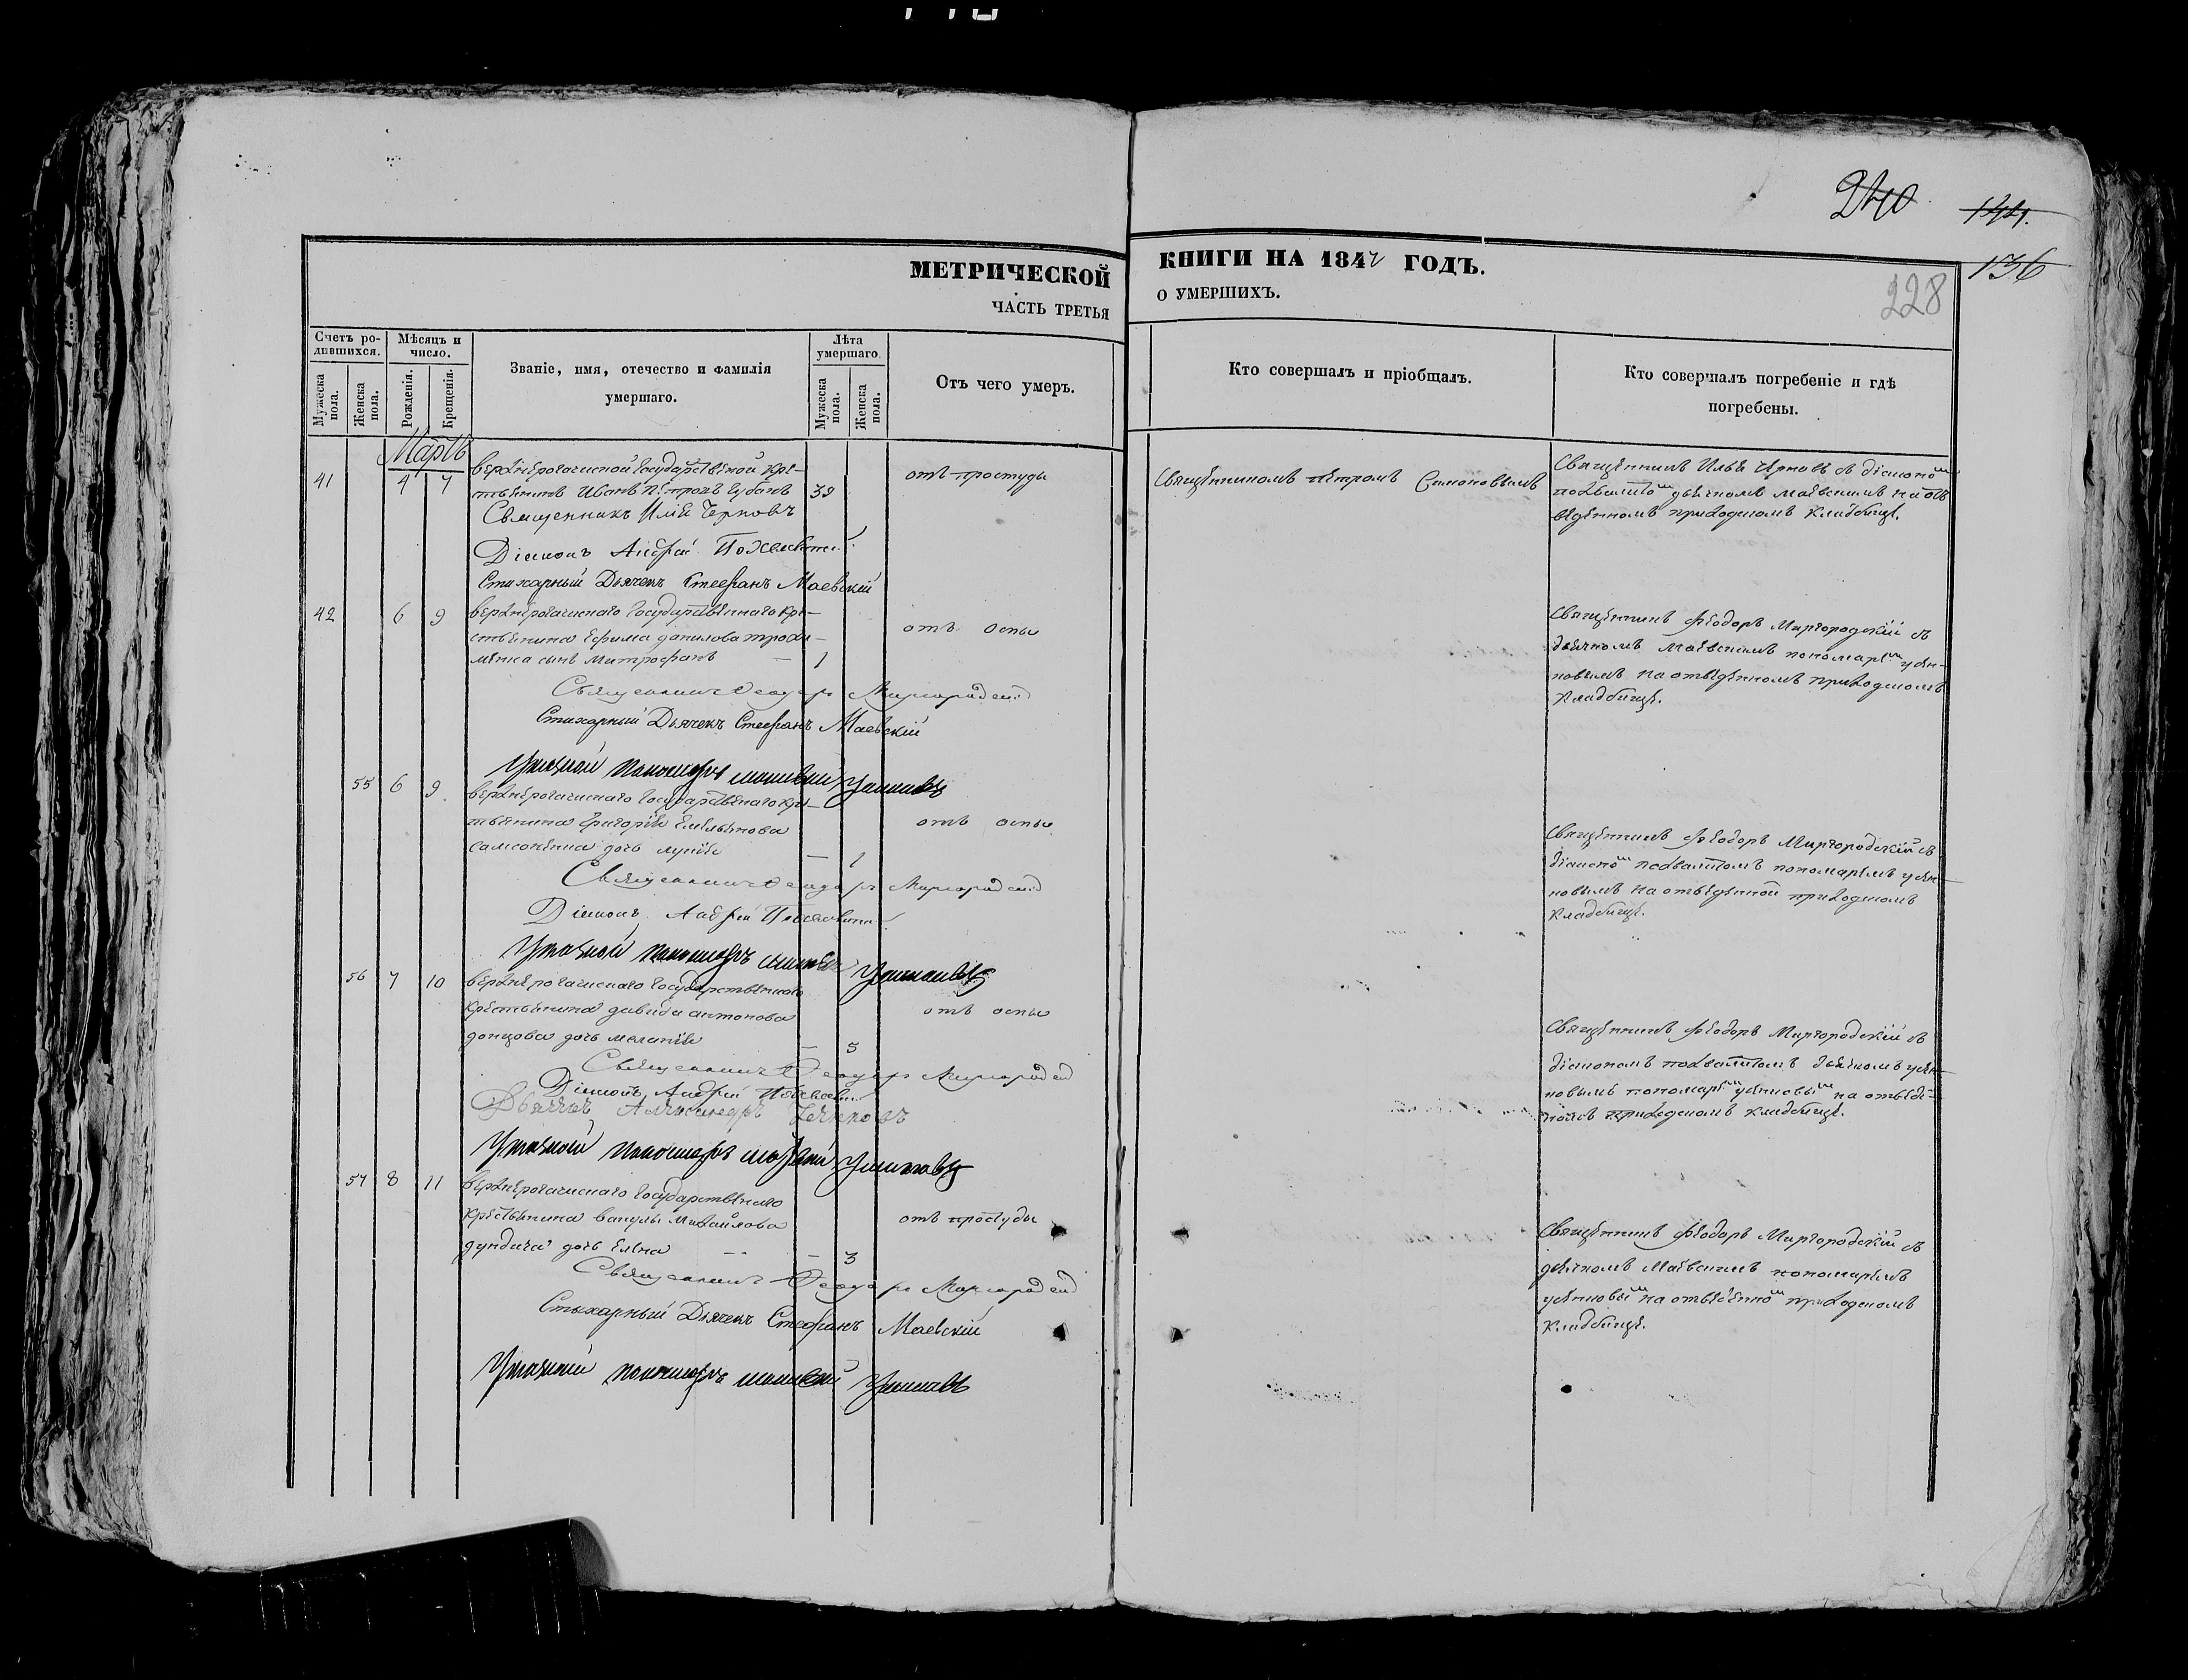 240
144.
136
228
МЕТРИЧЕСКОЙ КНИГИ НА 1847 ГОДЪ.
ЧАСТЬ ТРЕТЬЯ О УМЕРШИХЪ.
Счетъ родившихся.
Мужеска пола.
Женска пола.
Мѣсяцъ и число.
Рожденія.
Крещенія.
Званіе, имя, отечество и фамилія умершаго.
Лѣта умершаго
Мужеска пола.
Женска пола.
Отъ чего умеръ.
Кто совершалъ и пріобщалъ.
Кто совершалъ погребеніе и гдѣ погребены.
Мартъ
41 4 7 верхнерогачиской Государственой кре-
стьянинъ Иванъ Петровъ Губань 39 отъ простуды
Священникъ Илія Черновъ
Діаконъ Андрей Похвалитый
Стихарный Дьячекъ Стефанъ Маевскій
Священникомъ петромъ Самоновымъ
Священникъ Илья Чрновъ съ діаконом
похвалитом дьячкомъ маевскимъ на отъ
веденномъ приходскомъ Кладбище.
42 6 9 верхнерогачискаго Государственнаго кре-
стьянина Ефима данилова трохи-
менка сынъ митрофанъ — 1 отъ оспы
Священникъ Феодоръ Миргородскій
Стихарный Дьячекъ Стефанъ Маевскій
Указной пономарь Усиковъ
Священникъ Феодоръ Миргородскій съ
дьячкомъ Маевскимъ пономарем
новымъ на отведенномъ приходскомъ
Кладбище.
55 6 9 верхнерогачискаго Государственаго кре-
стьянина Григорія Емельянова
самсоненка дочь лукія — 1 отъ оспы
Священникъ Феодоръ Миргородскій
Діаконъ Андрей Похвалитый
Указной пономарь Усиковъ
Священникъ Феодоръ Миргородскій съ
діаконом похвалитомъ пономаремъ
новымъ на отведенной приходскомъ
Кладбище.
56 7 10 верхнерогачискаго Государственнаго
крестьянина давида антонова
донцова дочь меланія — 5 отъ оспы
Священникъ Феодоръ Миргородскій
Діаконъ Андрей Похвалитый
Дьячекъ Александръ
Указной пономарь Усиковъ
Священникъ Феодоръ Миргородскій съ
діакономъ похвалитомъ дьячкомъ
новымъ пономарем на отведе-
номъ приходскомъ кладбище.
57 8 11 верхнерогачискаго Государственнаго
крестьянина вакулы михайлова
дундича дочь Елена — 3 отъ простуды
Священникъ Феодоръ Миргородскій
Стихарный Дьячекъ Стефанъ Маевскій
Указной пономарь Усиковъ
Священникъ Феодоръ Миргородскій съ
дьячкомъ Маевскимъ пономаремъ
на отведенном приходскомъ
Кладбище.